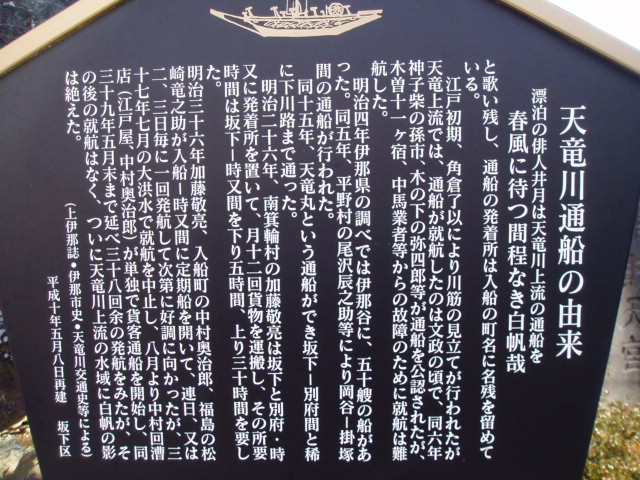 天竜川通船の由来
漂泊の俳人井月は天竜川上流の通船を
春風に待つ間程なき白帆哉
と歌い残し、通船の発着所は入船の町名に名残を留めて
いる。
江戸初期、角倉了以により川筋の見立てが行われたが
天竜上流では、通船が就航したのは文政の頃で、同六年
神子柴の孫市、木の下の弥四郎等が通船を公認されたが、
木曽十一ヶ宿、中馬業者等からの故障のために就航は難
航した。
明治四年伊那県の調べでは伊那谷に、五十艘の船があ
った。同五年、平野村の尾沢辰之助等により岡谷ー掛塚
間の通船が行われた。
同十五年、天竜丸という通船ができ坂下ー別府間と稀
に下川路まで通った。
明治二十六年、南箕輪村の加藤敬亮は坂下と別府・時
又に発着所を置いて、月十二回貨物を運搬し、その所要
時間は坂下ー時又間を下り五時間、上り三十時間を要し
た。
明治三十六年加藤敬亮、入船町の中村奥治郎、福島の松
崎竜之助が入船ー時又間に定期船を開いて、連日、又は
二、三日毎に一回発航して次第に好調に向かったが、三
十七年七月の大洪水で就航を中止し、八月より中村回漕
店(江戸屋 中村奥治郎)が単独で貨客通船を開始し、同
三十九年五月末まで延べ三十八回余の発航をみたが、そ
の後の就航はなく、ついに天竜川上流の水域に白帆の影
は絶えた。
(上伊那誌・伊那市史・天竜川交通史等による)
平成十年五月八日再建 坂下区